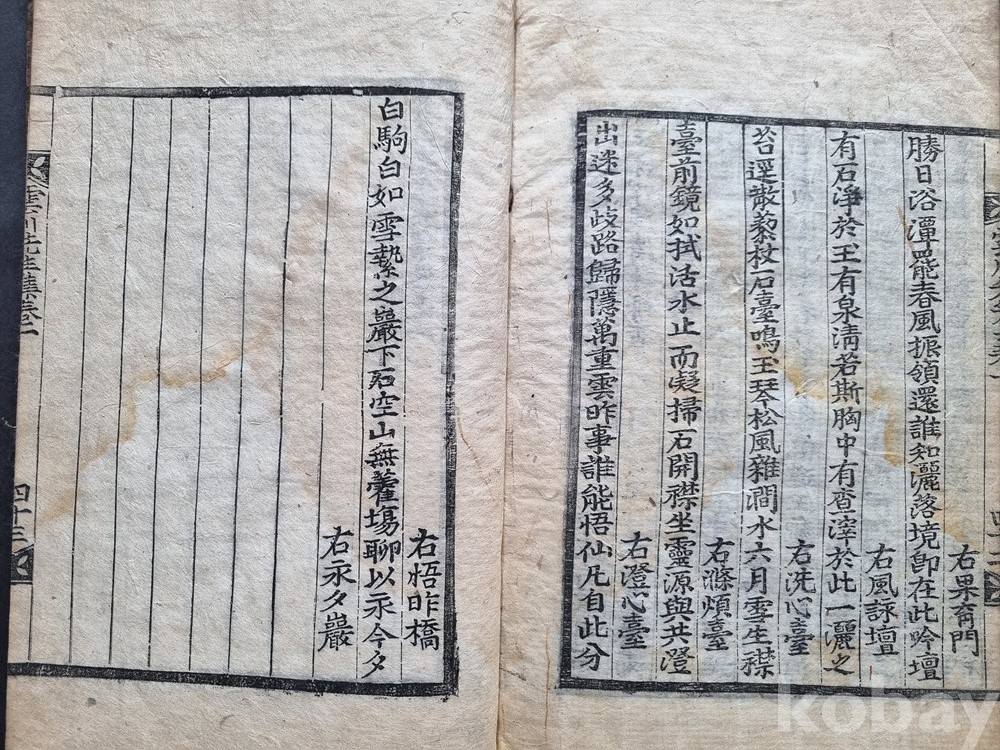 右果育門
勝日浴潭罷春風振嶺還誰知灑落境卽在此吟壇
右風詠壇
有石淨於玉有泉淸若斯胸中有查滓於此一灑之
右洗心臺
苔逕散藜杖石臺鳴玉琴松風雜澗水六月雪生襟
右滌煩臺
臺前鏡如拭活水止而凝掃石開襟坐靈源與共澄
右澄心臺
出迷多歧路歸隱萬重雲昨事誰能悟仙凡自此分
右悟昨橋
白駒白如雪縶之巖下石空山無藿場聊以永今夕
右永夕巖
雲川先生集卷二
四十三
kobay